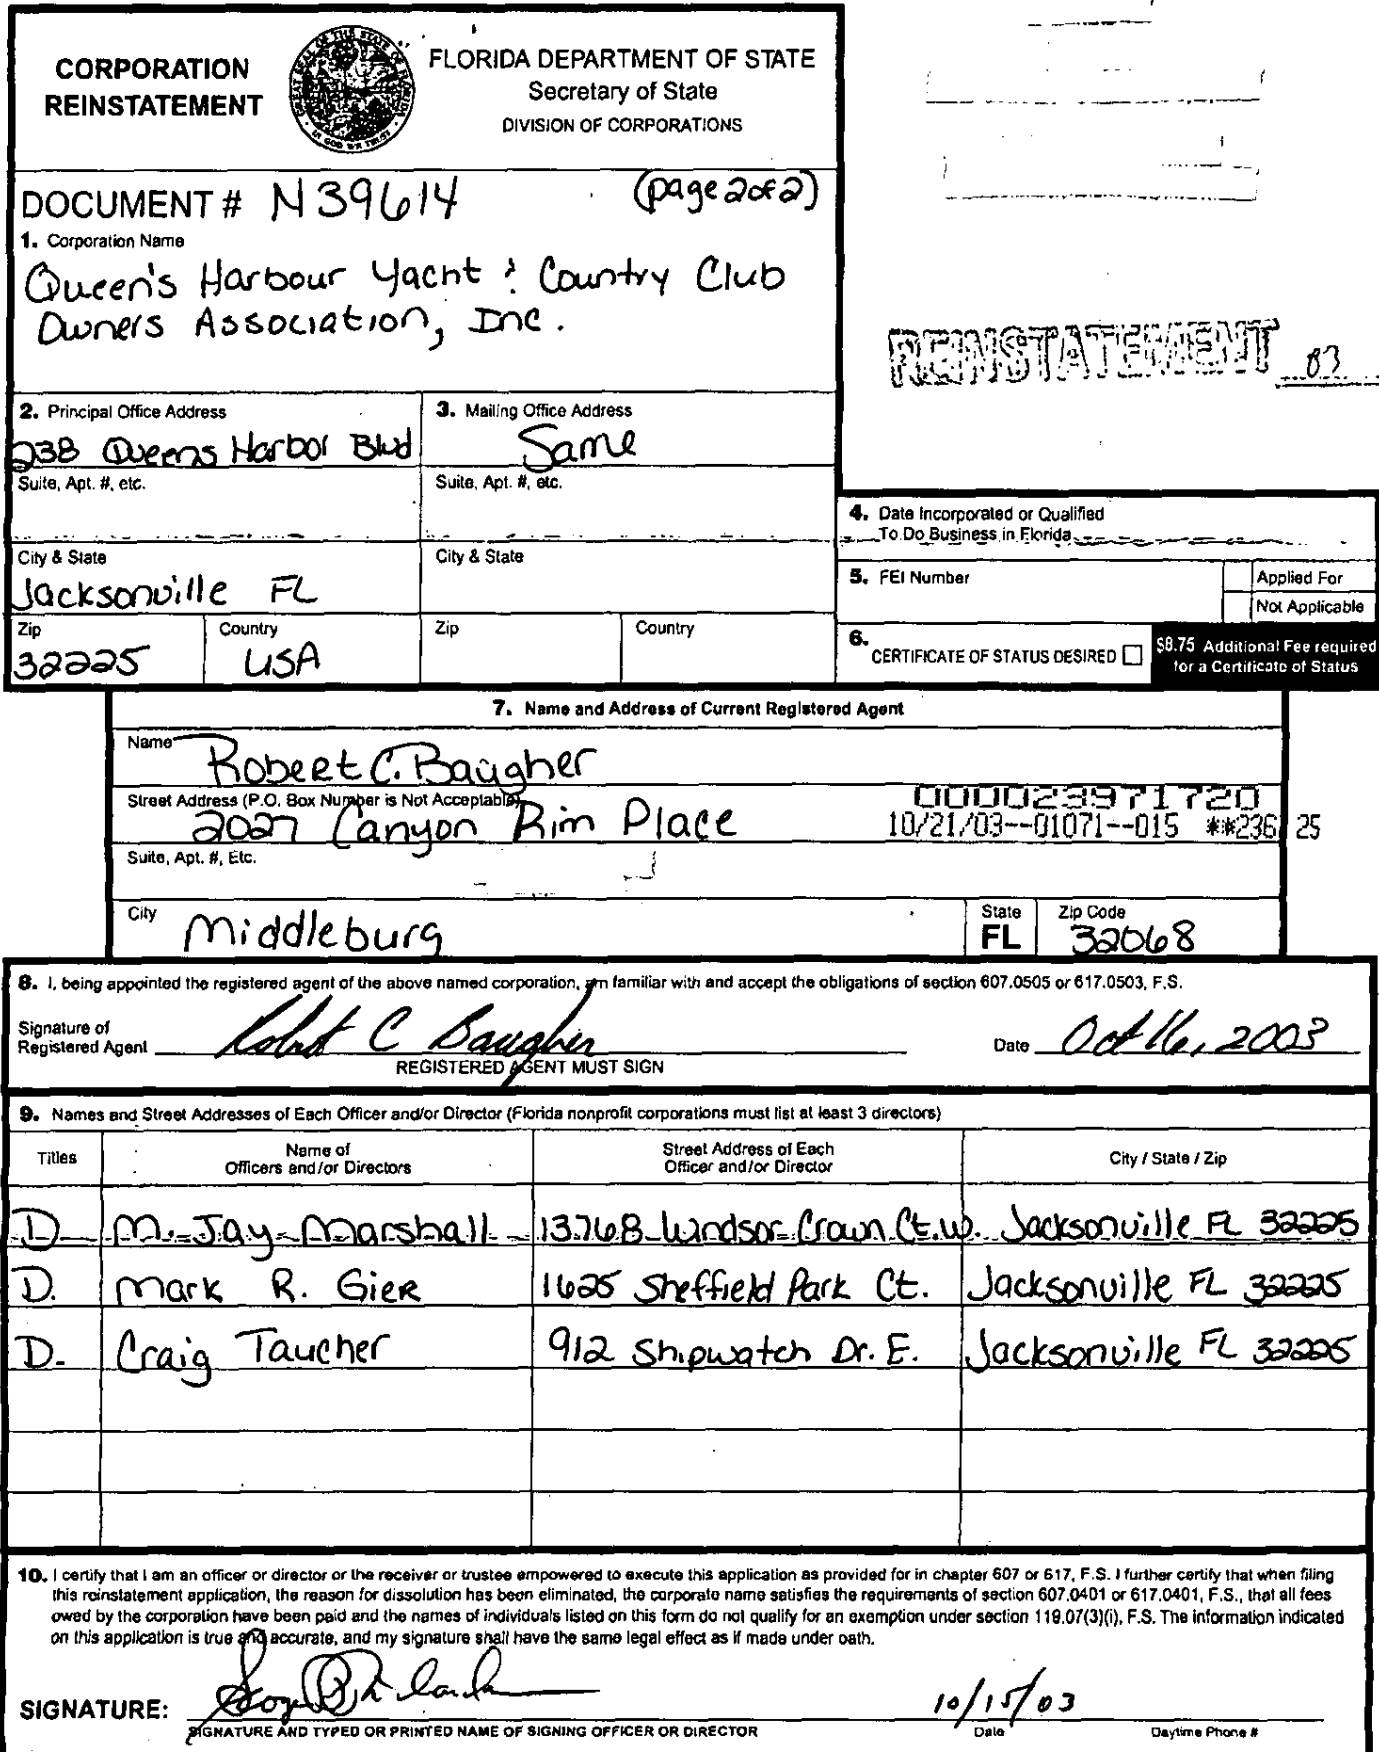 CORPORATION
REINSTATEMENT
FLORIDA DEPARTMENT OF STATE
Secretary of State
DIVISION OF CORPORATIONS
DOCUMENT # N39614 (page 2 of 2)
1. Corporation Name
Queen's Harbour Yacht & Country Club
Owners Association, Inc.
REINSTATEMENT 03
2. Principal Office Address
238 Queens Harbor Blvd
3. Mailing Office Address
Same
Suite, Apt. #, etc.
Suite, Apt. #, etc.
4. Date Incorporated or Qualified
To Do Business in Florida
City & State
Jacksonville FL
City & State
5. FEI Number
Applied For
Not Applicable
Zip
32225
Country
USA
Zip
Country
6. CERTIFICATE OF STATUS DESIRED
$8.75 Additional Fee required
for a Certificate of Status
7. Name and Address of Current Registered Agent
Name
Robert C. Baugher
Street Address (P.O. Box Number is Not Acceptable)
2027 Canyon Rim Place
000023971720
10/21/03--01071--015 **236 25
Suite, Apt. #, Etc.
City
Middleburg
State
FL
Zip Code
32068
8. I, being appointed the registered agent of the above named corporation, am familiar with and accept the obligations of section 607.0505 or 617.0503, F.S.
Signature of
Registered Agent Robert C Baugher
Date Oct 16, 2003
REGISTERED AGENT MUST SIGN
9. Names and Street Addresses of Each Officer and/or Director (Florida nonprofit corporations must list at least 3 directors)
Titles
Name of
Officers and/or Directors
Street Address of Each
Officer and/or Director
City / State / Zip
D M. Jay Marshall 13768 Windsor Crown Ct. W. Jacksonville FL 32225
D. Mark R. Gier 1625 Sheffield Park Ct. Jacksonville FL 32225
D. Craig Taucher 912 Shipwatch Dr. E. Jacksonville FL 32225
10. I certify that I am an officer or director or the receiver or trustee empowered to execute this application as provided for in chapter 607 or 617, F.S. I further certify that when filing
this reinstatement application, the reason for dissolution has been eliminated, the corporate name satisfies the requirements of section 607.0401 or 617.0401, F.S., that all fees
owed by the corporation have been paid and the names of individuals listed on this form do not qualify for an exemption under section 119.07(3)(i), F.S. The information indicated
on this application is true and accurate, and my signature shall have the same legal effect as if made under oath.
SIGNATURE:
10/15/03
SIGNATURE AND TYPED OR PRINTED NAME OF SIGNING OFFICER OR DIRECTOR
Date
Daytime Phone #